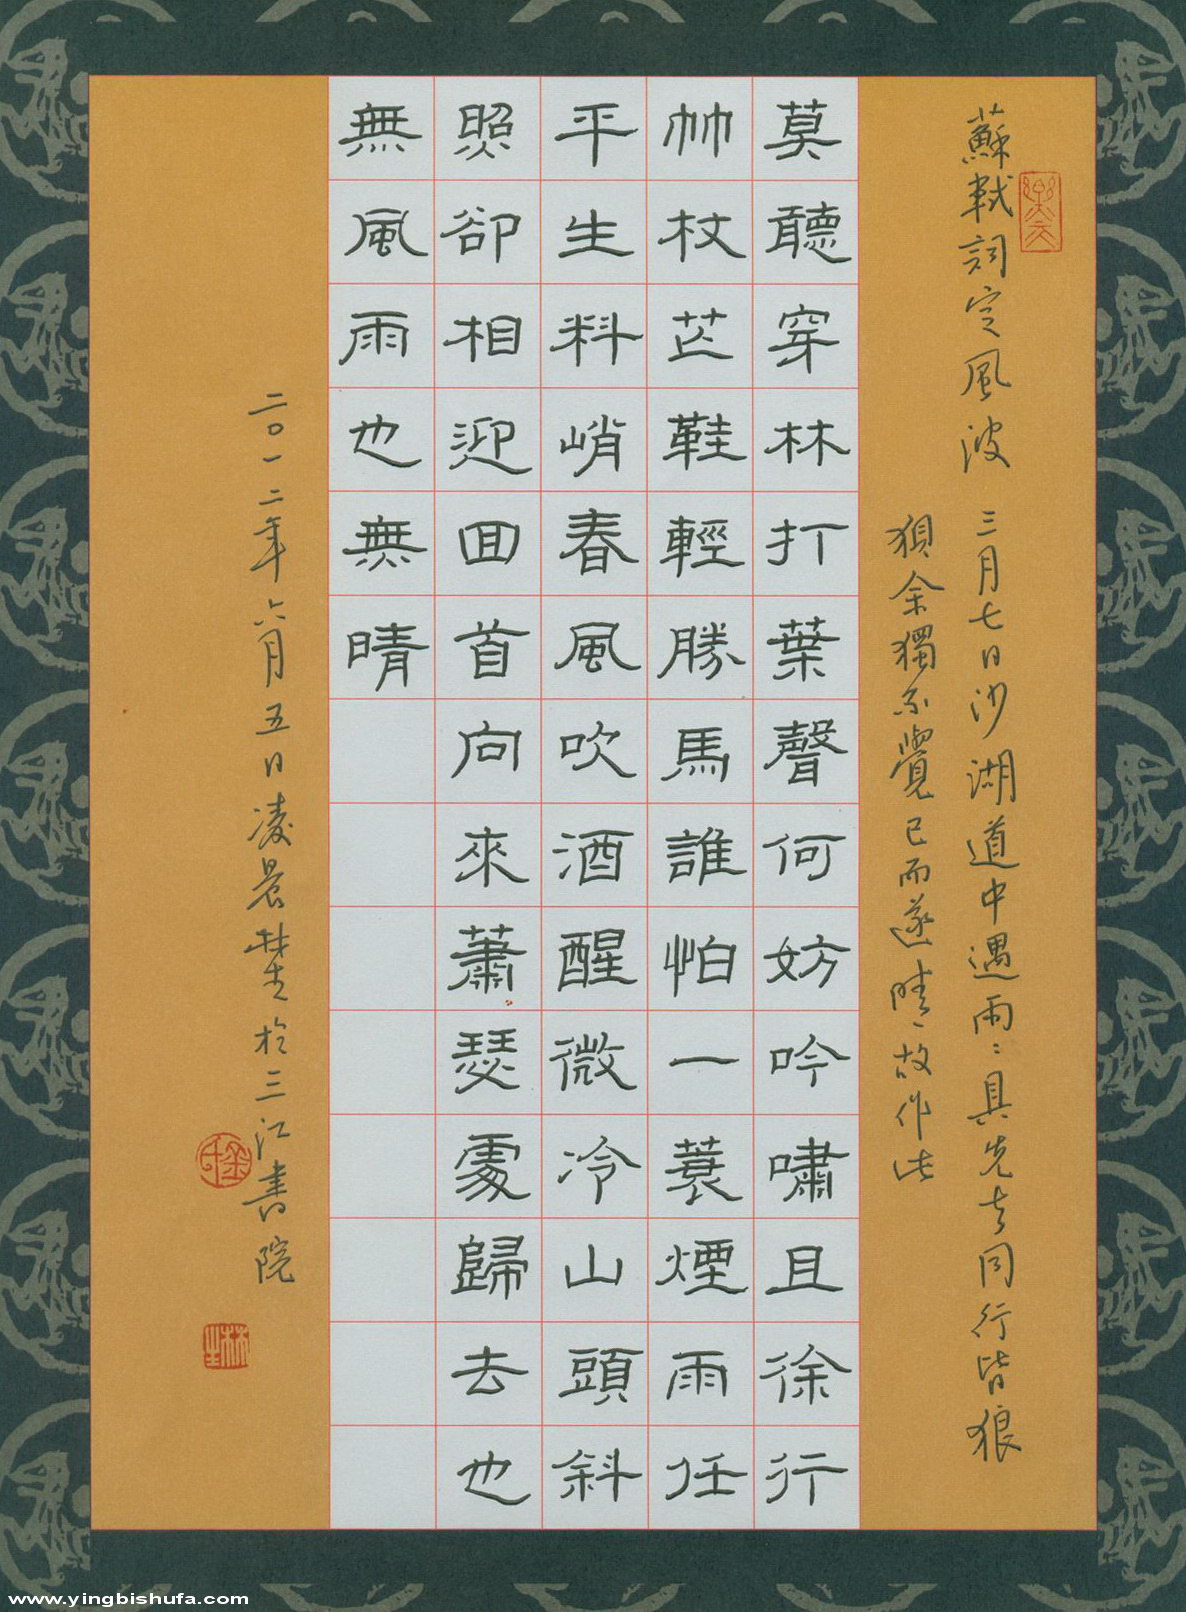 蘇軾詞定風波 三月七日沙湖道中遇雨雨具先去同行皆狼
狽余獨不覺已而遂晴故作此
莫聽穿林打葉聲何妨吟嘯且徐行
竹杖芒鞋輕勝馬誰怕一蓑煙雨任
平生料峭春風吹酒醒微冷山頭斜
照卻相迎回首向來蕭瑟處歸去也
無風雨也無晴
二〇一二年六月五日凌晨林生於三江書院
林生
www.yingbishufa.com